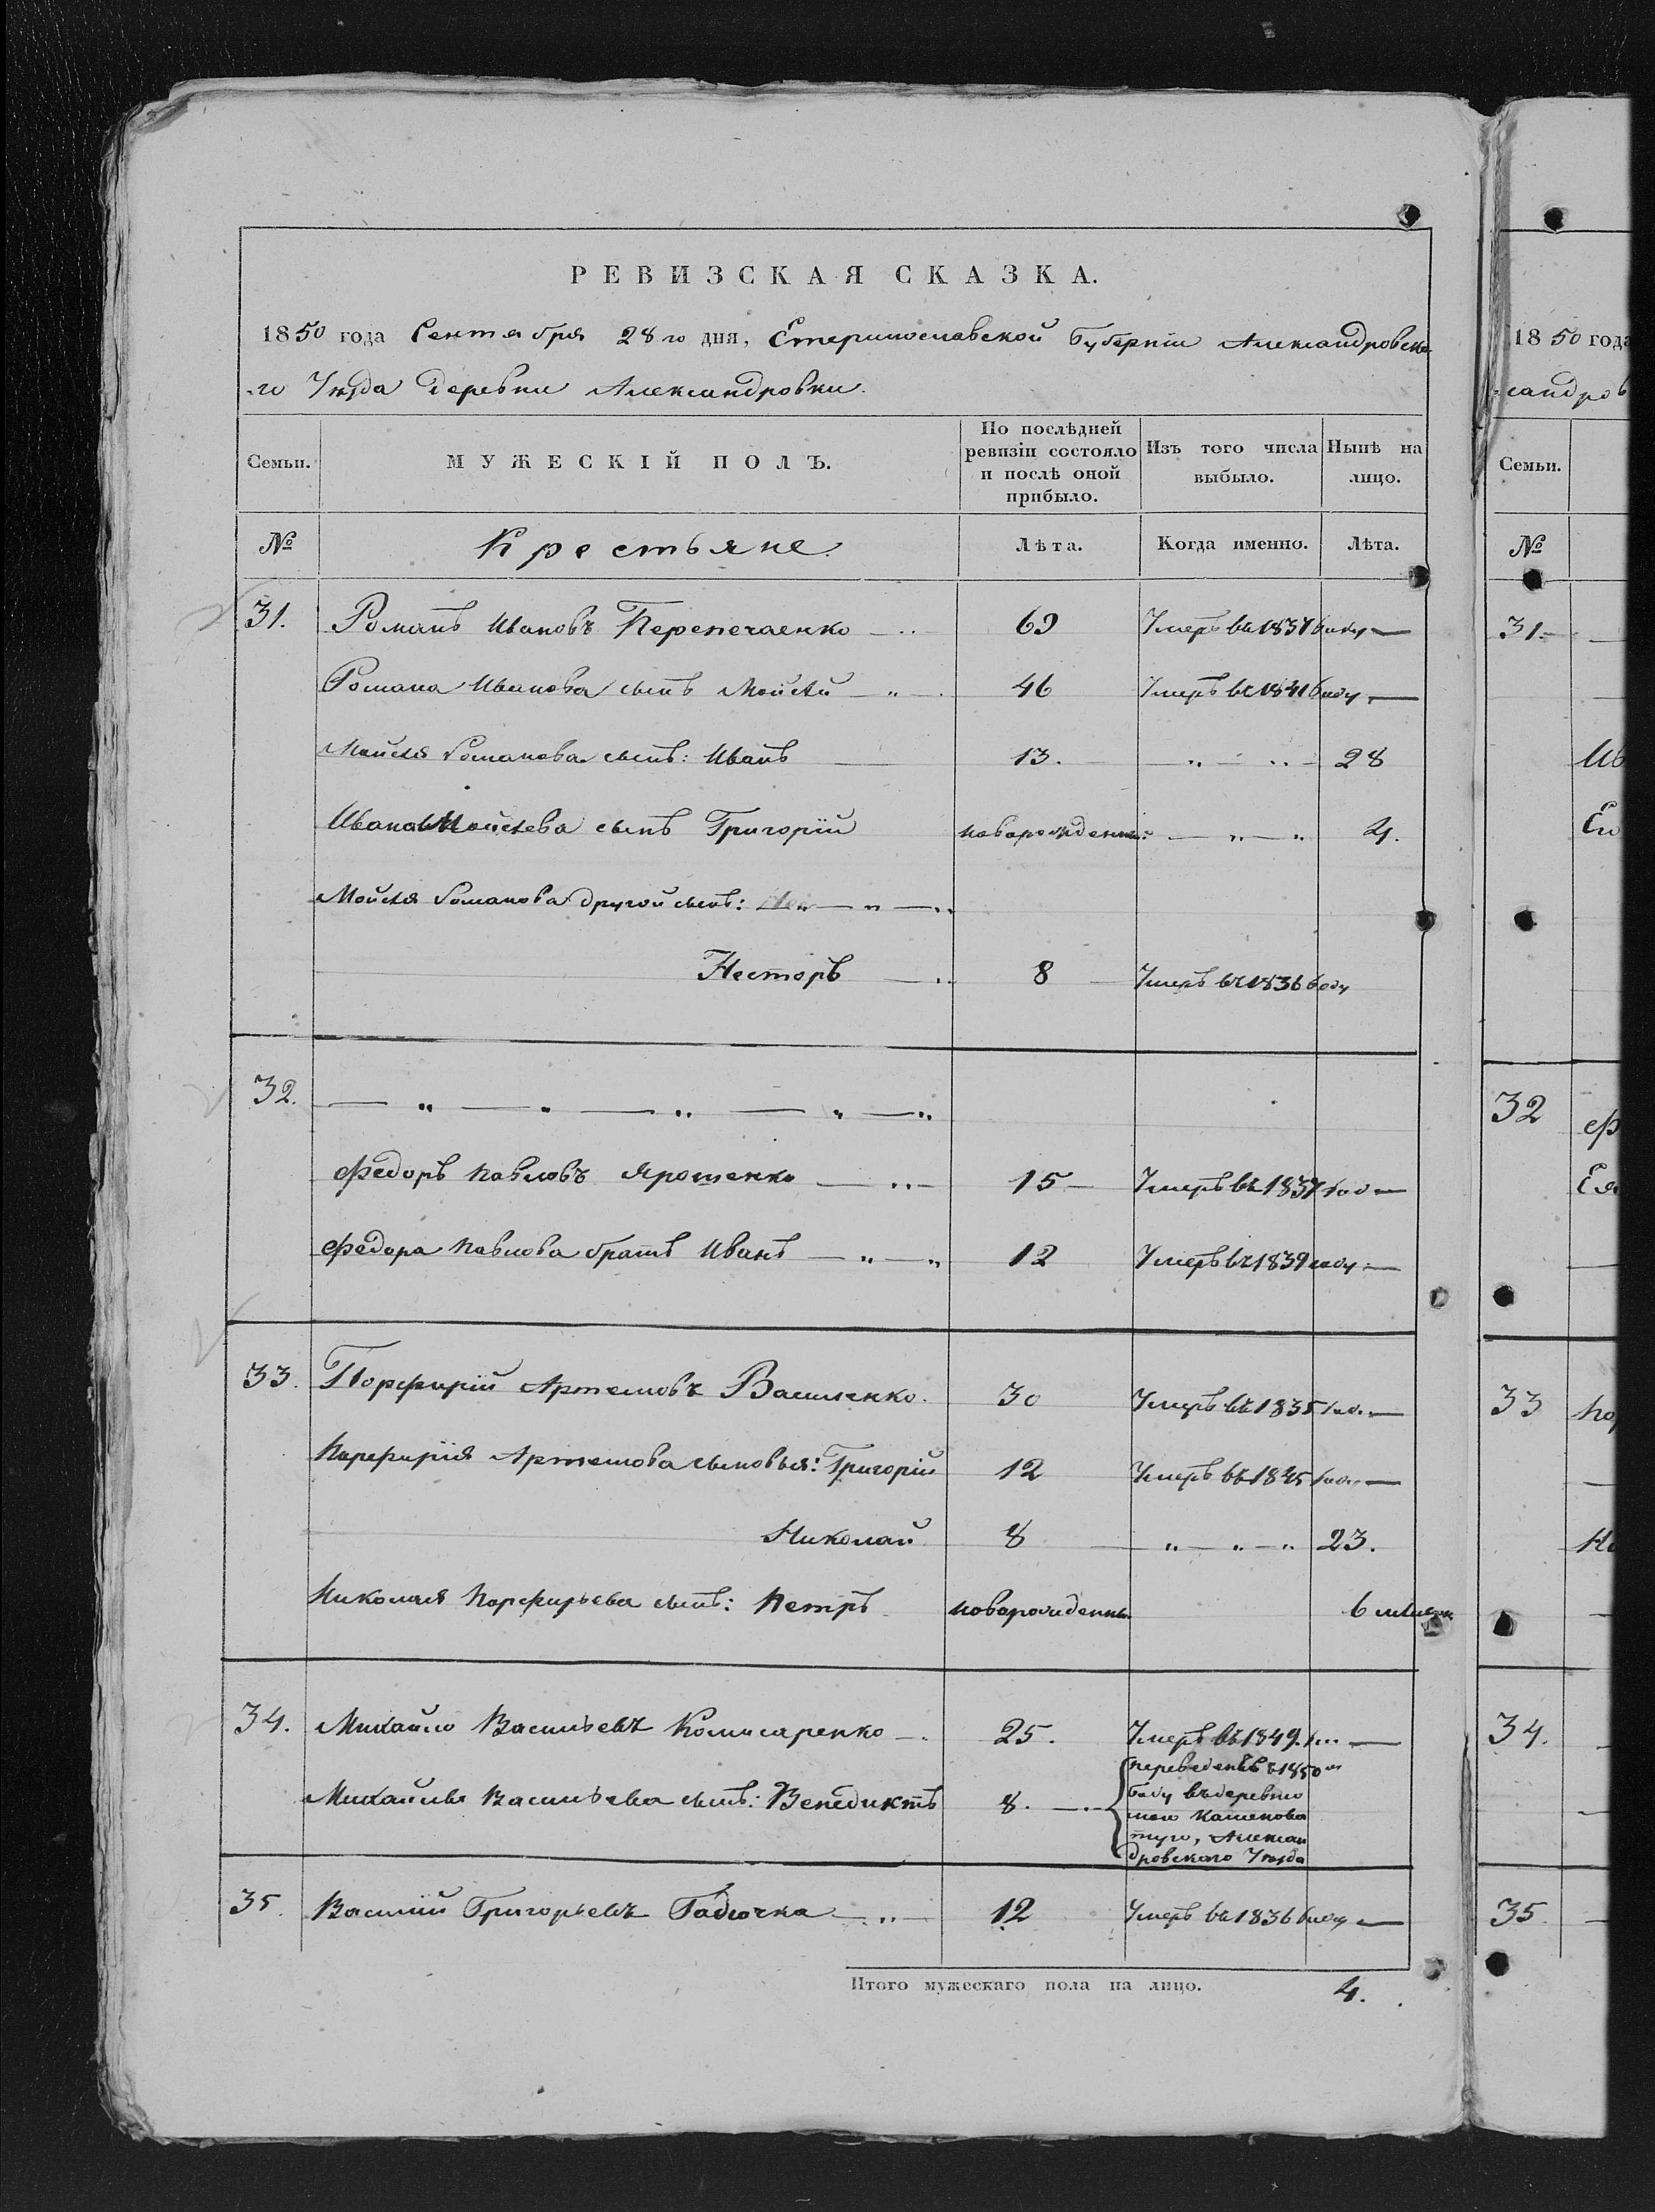 РЕВИЗСКАЯ СКАЗКА.
1850 года Сентября 28го дня, Етеринославской Губерніи Александровска-
-го Уѣзда деревни Александровки.
Семьи. МУЖЕСКІЙ ПОЛЪ. По послѣдней ревизіи состояло и послѣ оной прибыло. Изъ того числа выбыло. Нынѣ на лицо.
№ Крестьяне. Лѣта. Когда именно. Лѣта.
31. Романъ Ивановъ Перепечаенко 69 Умеръ въ 1837 году
Романа Иванова сынъ Мойсѣй 46 Умеръ въ 1841 году
Мойсея Романова сынъ: Иванъ 13. 28
Ивана Мойсеева сынъ Григорій новорожденный 4.
Мойсея Романова другой сынъ:
Несторъ 8 Умеръ въ 1836 году
32.
Федоръ Павловъ Ярошенко 15 Умеръ въ 1837 год
Федора Павлова братъ Иванъ 12 Умеръ въ 1839 году
33. Порфирій Артемовъ Василенко. 30 Умеръ въ 1835 год.
Порфирія Артемова сыновья: Григорій 12 Умеръ въ 1845 год.
Николай 8 23.
Николая Порфирьева сынъ: Петръ новорожденны 6 мѣсяц
34. Михайло Васильевъ Комисаренко 25. Умеръ въ 1849.
Михайлы Васильева сынъ: Венедиктъ 8. переведенъ въ 1850м
году въ деревню
мою Каменова
тую, Алексан
дровскаго Уѣзда
35. Василій Григорьевъ Гадючка 12 Умеръ въ 1836 году
Итого мужескаго пола на лицо. 4.
1850 года
ксандров
Семьи.
№
31.
Ив
Ег
32 Ф
Ея
33 По
Ни
34.
35.